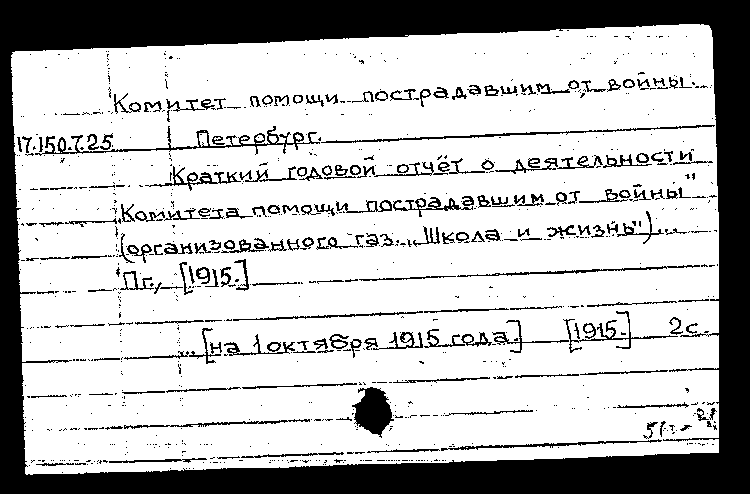 Комитет помощи пострадавшим от войны.
17.150.7.25 Петербург.
Краткий годовой отчёт о деятельности
„Комитета помощи пострадавшим от войны"
(организованного газ. „Школа и жизнь")...
Пг., [1915.]
... [на 1 октября 1915 года.] [1915.] 2с.